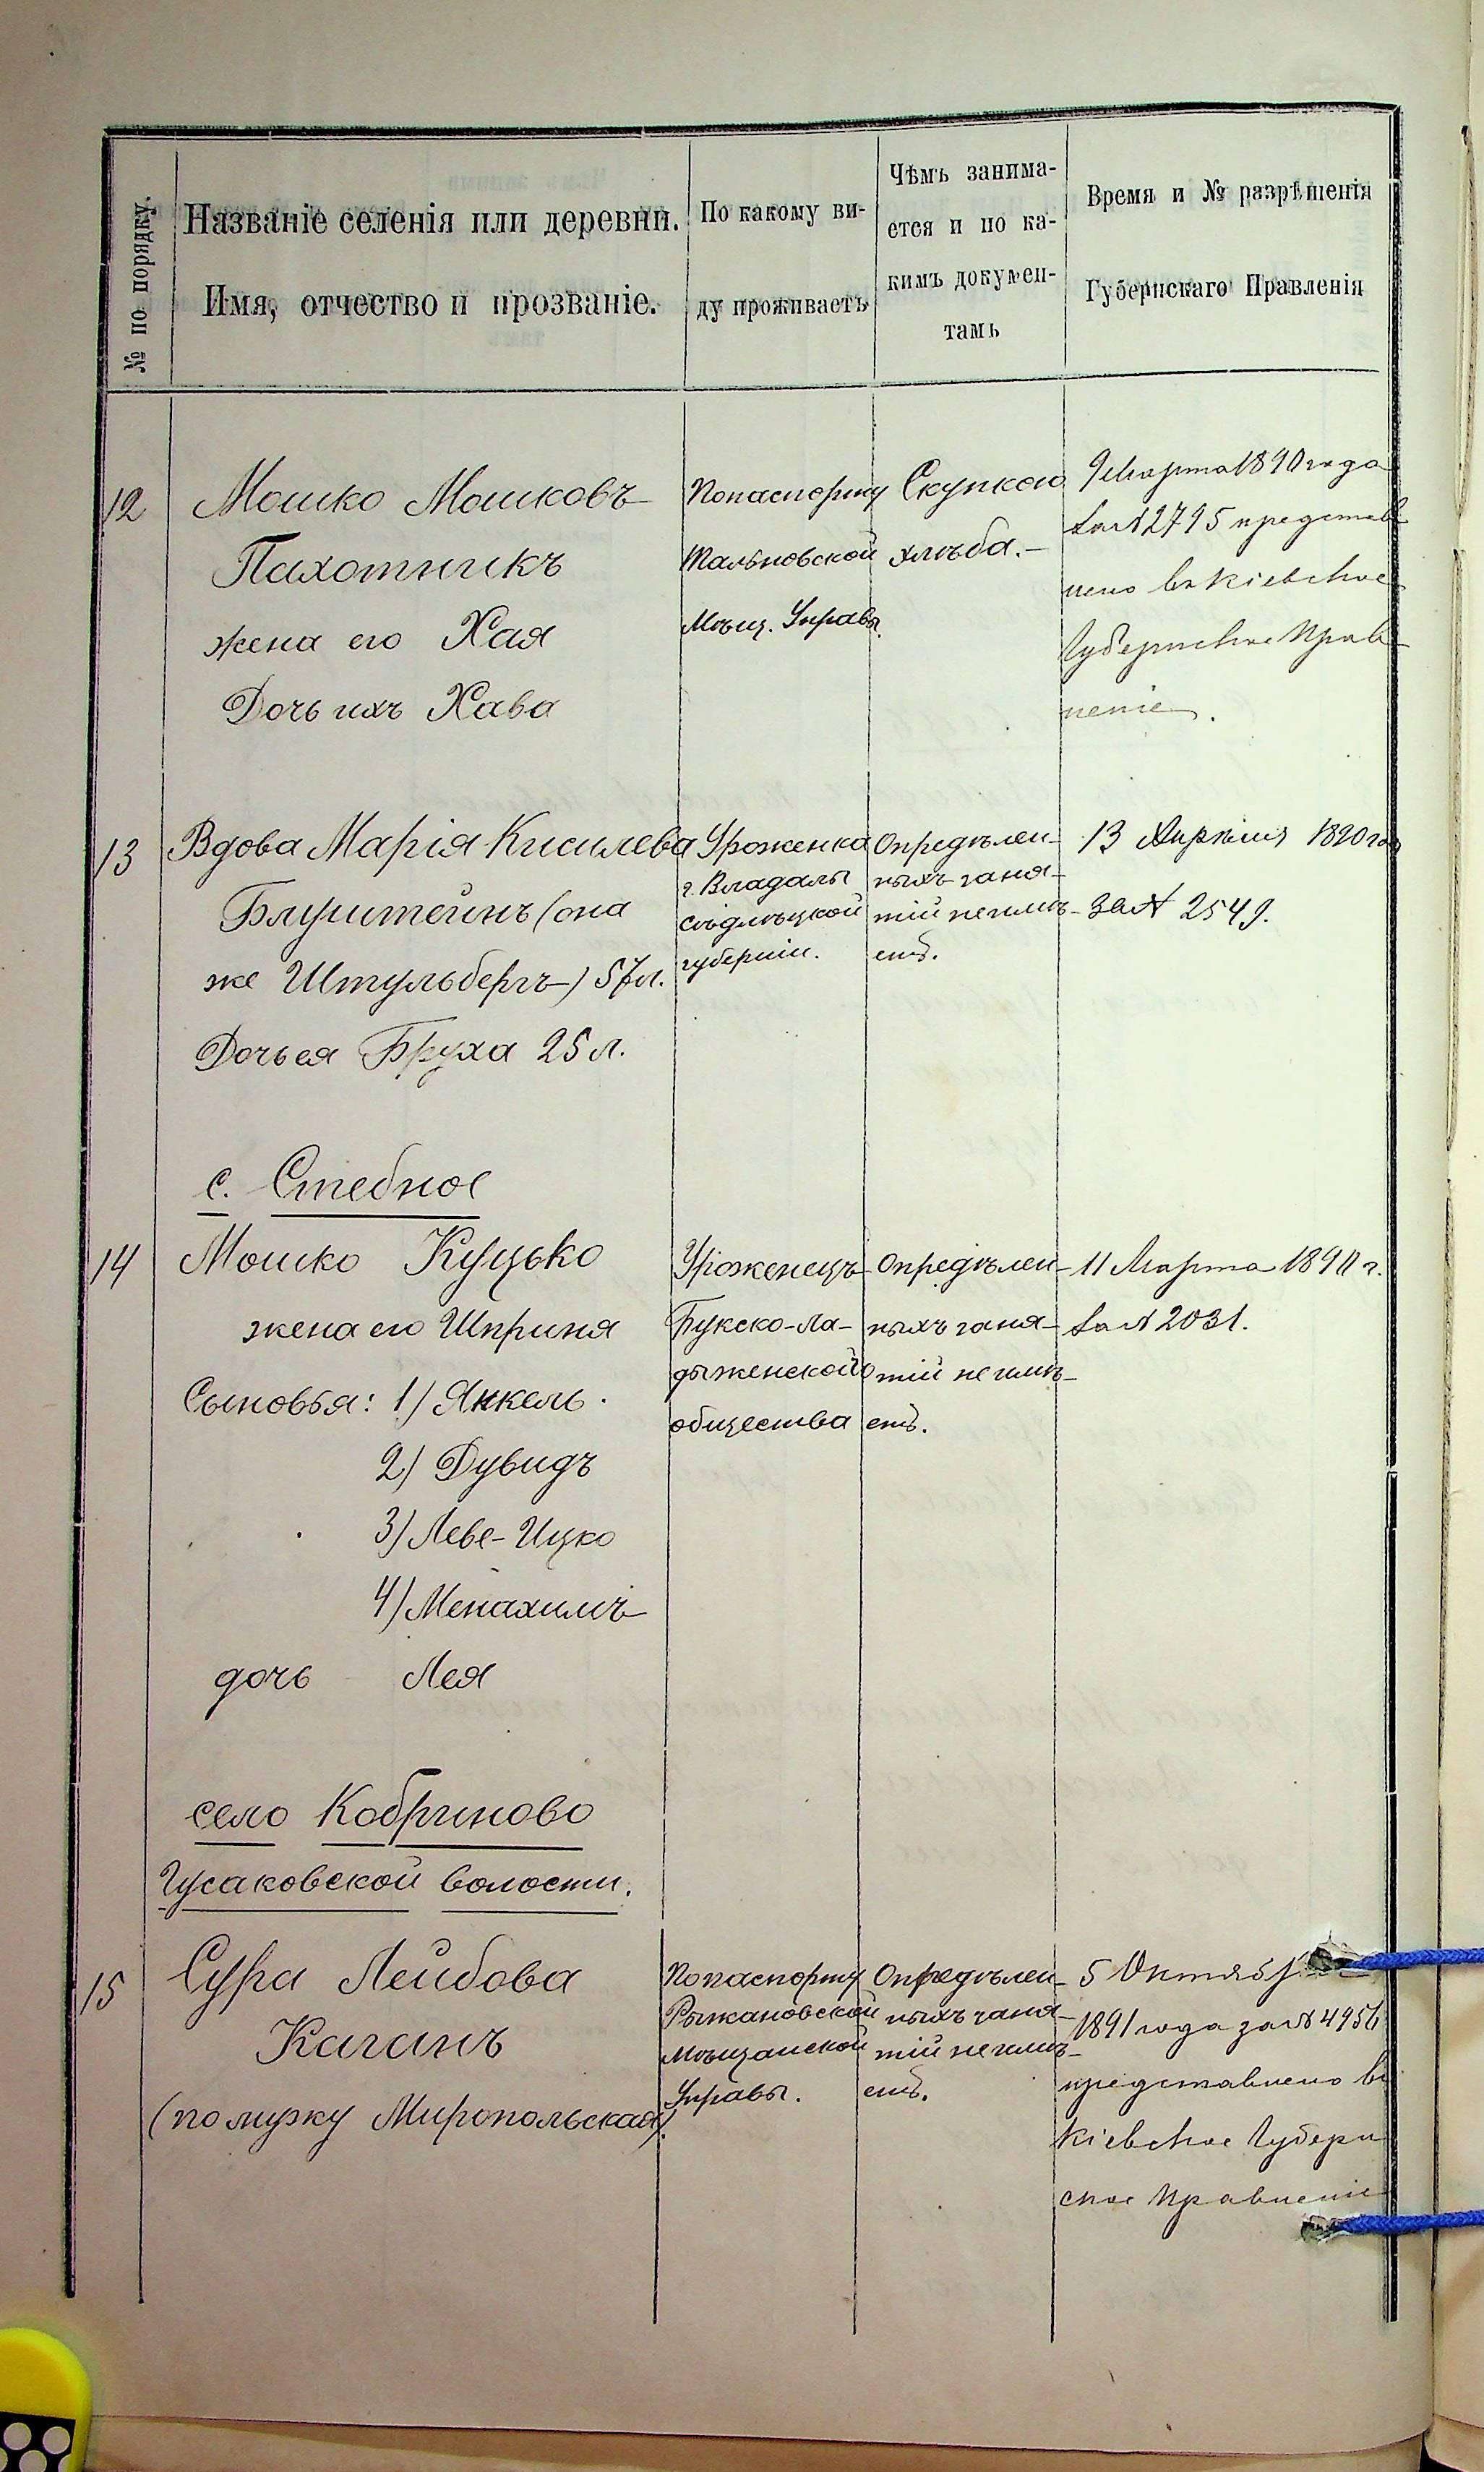 № по порядку.
Названіе селенія или деревни.
Имя, отчество и прозваніе.
По какому ви-
ду проживаетъ
Чѣмъ занима-
ется и по ка-
кимъ докумен-
тамъ
Время и № разрѣшенія
Губернскаго Правленія
12
Мошко Мошковъ
Пахотникъ
жена его Хая
Дочь ихъ Хава
По паспорту
Тальновской
Мѣщ. Управы.
Скупкою
хлѣба.
9 Марта 1890 года
за № 2795 представ
лено въ Кіевское
Губернское Прав
леніе.
13
Вдова Марія Кисилева
Блуштейнъ (она
же Штульбергъ) 57 л.
Дочь ея Бруха 25 л.
Уроженка
г. Владалы
Сѣдлѣцкой
губерніи.
Опредѣлен-
ныхъ заня-
тій не имѣ-
етъ.
13 Апрѣля 1890 го
за № 2549.
с. Стебное
14
Мошко Куцько
жена его Шприня
Сыновья: 1) Янкель.
2) Дувидъ
3) Лебе-Ицко
4) Менахимъ
дочь Лея
Уроженецъ
Букско-Ла-
дыженской
общества
Опредѣлен-
ныхъ заня-
тій не имѣ-
етъ.
11 Марта 1890 г.
за № 2031.
село Кобриново
Гусаковской волости.
15
Сура Лейбова
Каганъ
(по мужу Миропольская).
По паспорту
Рыжановской
мѣщанской
Управы.
Опредѣлен-
ныхъ заня-
тій не имѣ-
етъ.
5 Октябр
1891 года за № 4956
представлено въ
Кіевское Губерн
ское Правленіе